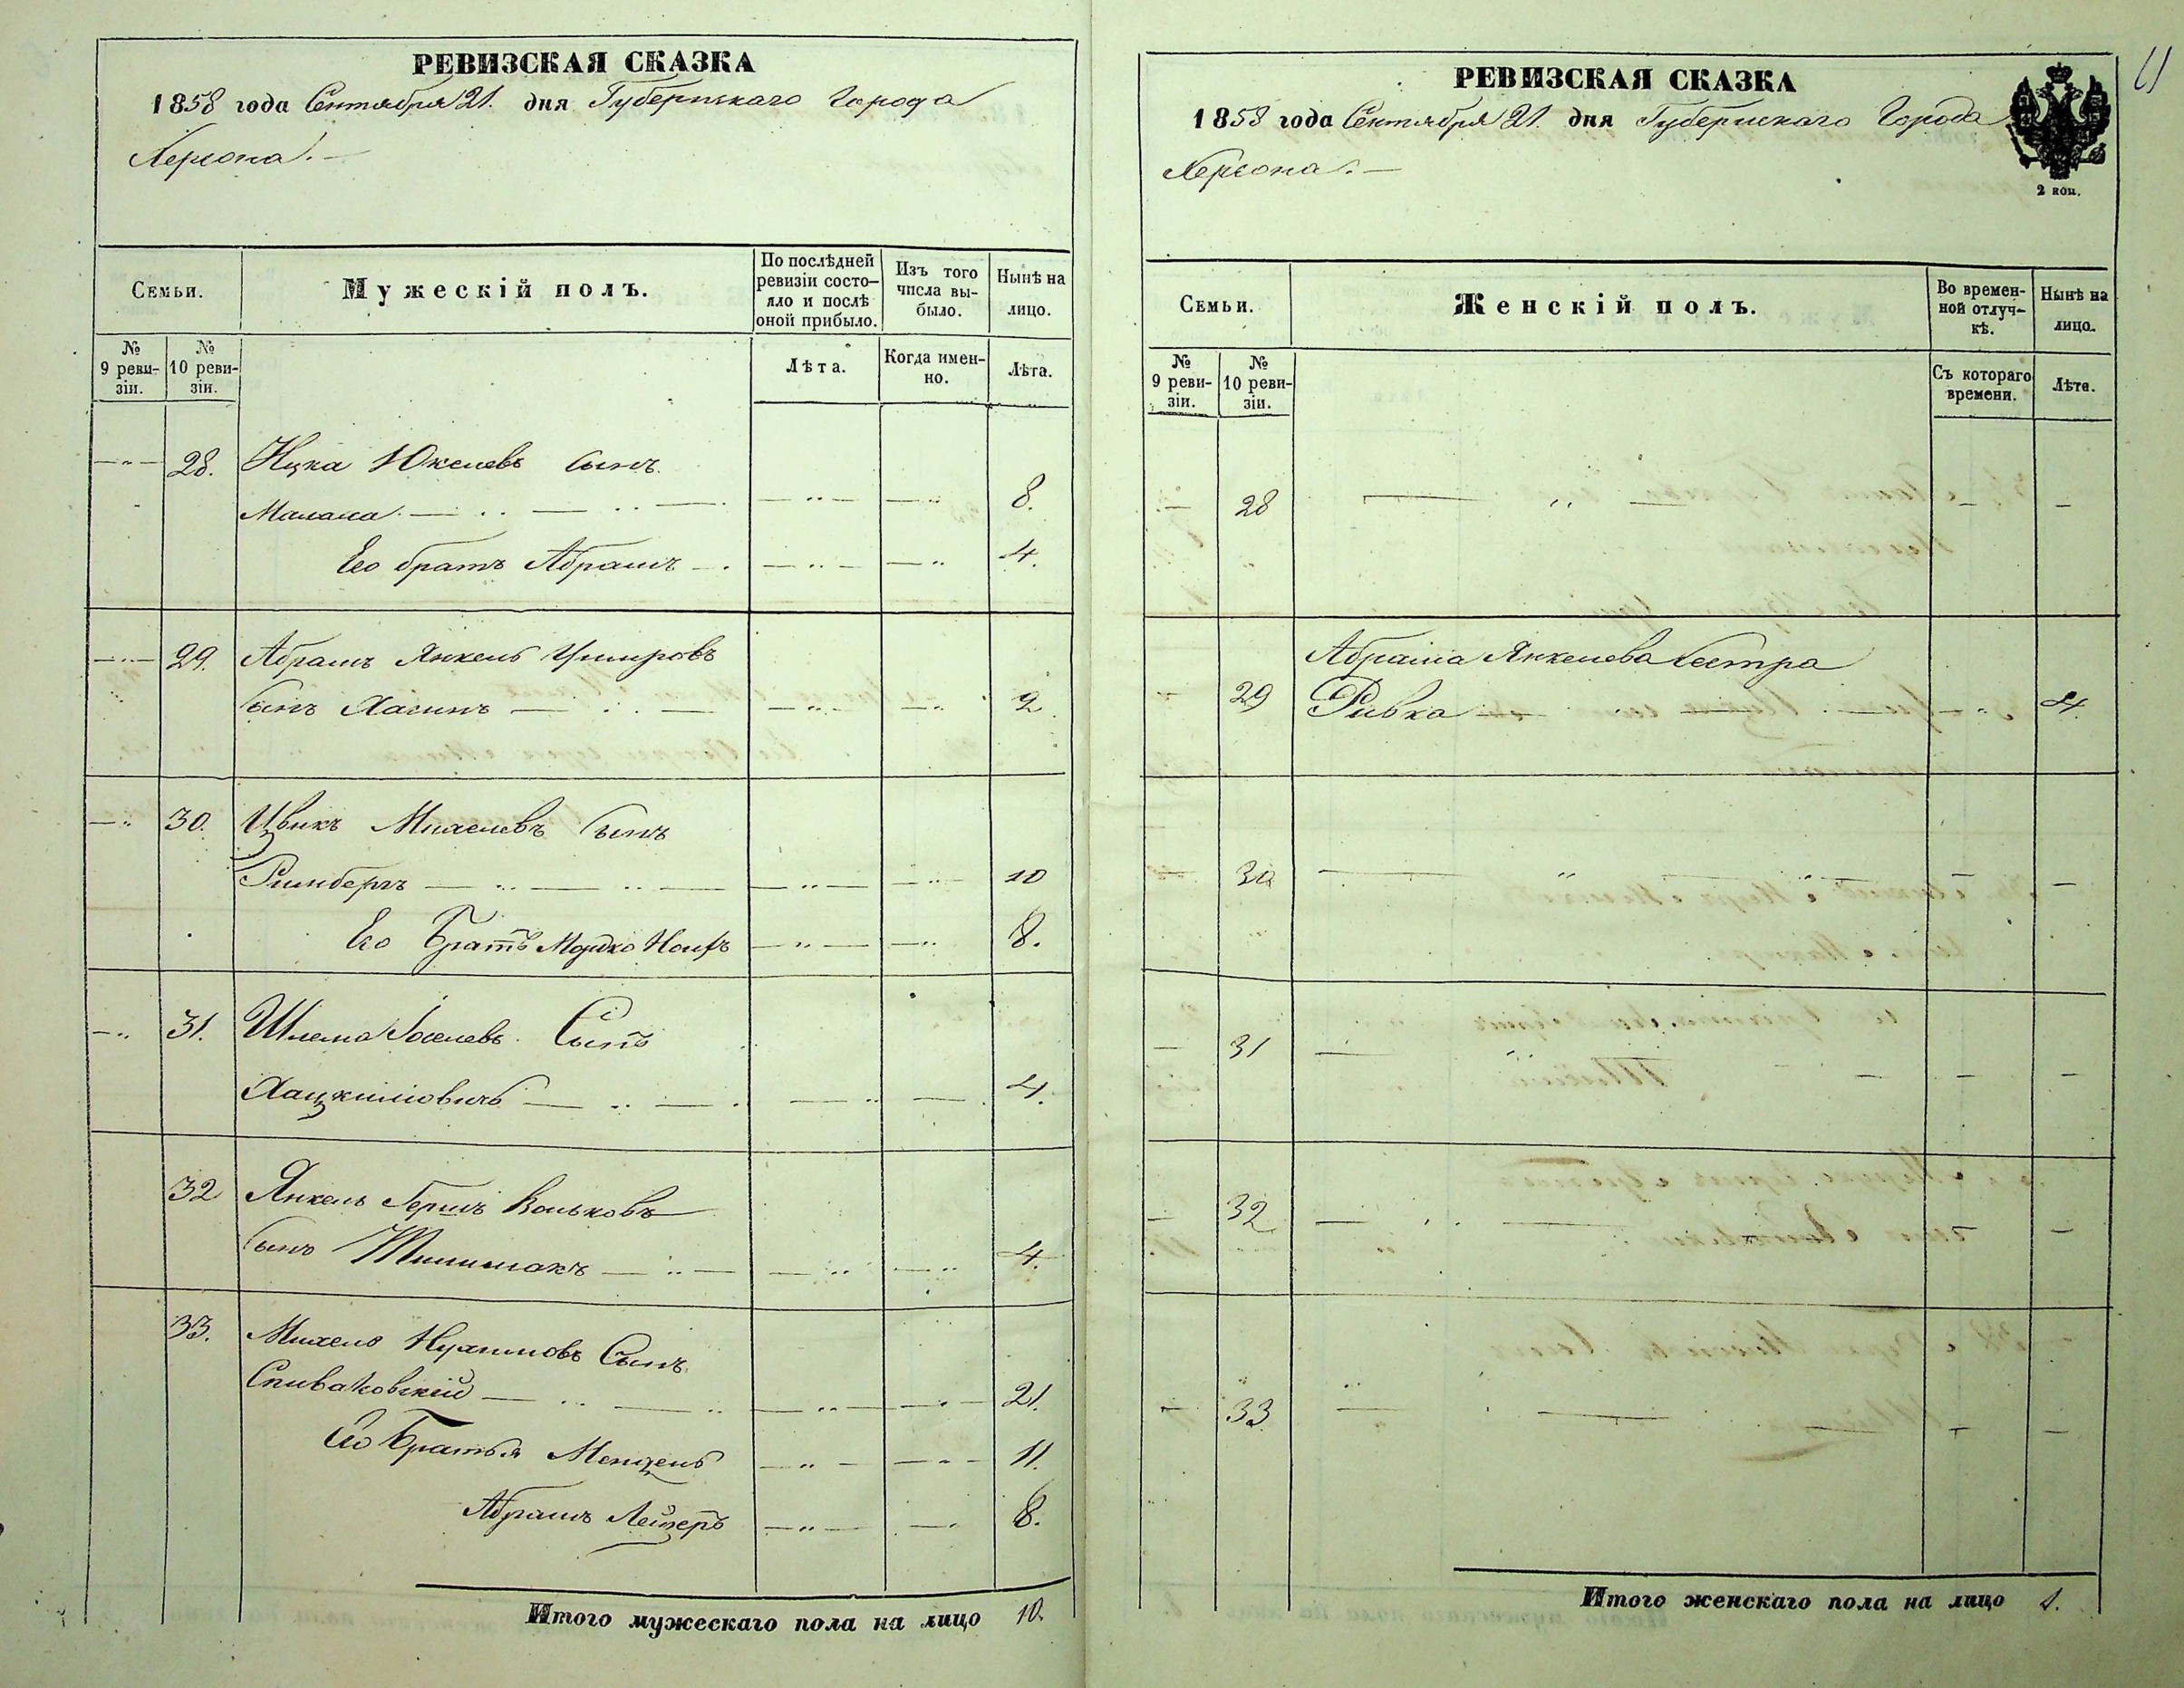 РЕВИЗСКАЯ СКАЗКА
1858 года Сентября 21. дня Губернскаго Города
Херсона. —
Семьи.
Мужескій полъ.
По послѣдней ревизіи состояло и послѣ оной прибыло.
Изъ того числа выбыло.
Нынѣ на лицо.
№ 9 ревизіи.
№ 10 ревизіи.
Лѣта.
Когда именно.
Лѣта.
28. Ицка Юкелевъ сынъ
Малаха 8.
Его братъ Абрамъ 4.
29. Абрамъ Янкель
сынъ Хасинъ 2
30. Цвикъ Михелевъ Сынъ
Римбергъ 10
Его Братъ Мордко 8.
31. Шлема Іоселевъ Сынъ
Хацкилиовичъ 4.
32 Янкель Гершъ Вольковъ
сынъ 4.
33. Михель Нухимовъ Сынъ
Спиваковскій 21.
Его Братья Мендель 11.
Абрамъ Лейзеръ 8.
Итого мужескаго пола на лицо 10.
РЕВИЗСКАЯ СКАЗКА
1858 года Сентября 21. дня Губернскаго Города
Херсона. —
2 коп.
Семьи.
Женскій полъ.
Во временной отлучкѣ.
Нынѣ на лицо.
№ 9 ревизіи.
№ 10 ревизіи.
Съ котораго времени.
Лѣта.
28
Абрама Янкелева Сестра
29 Ривка 4.
30
31
32
33
Итого женскаго пола на лицо 1.